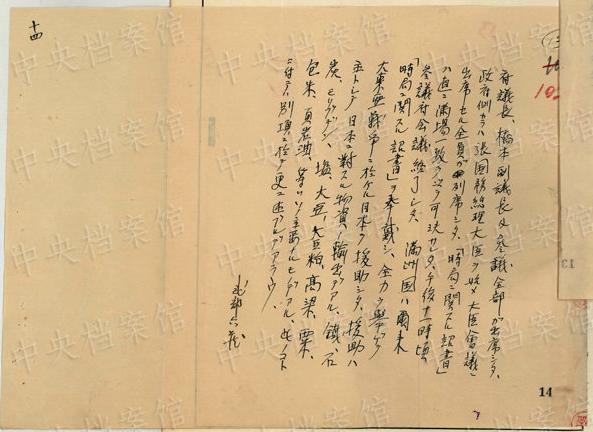 府議長、橋本副議長及参議全部ガ出席シタ、
政府側カラハ張国務総理大臣ヲ始メ大臣会議ニ
出席セル全員ガ列席シタ、「時局ニ関スル詔書」
ハ直ニ満場一致ヲ以テ可決セラレ午後十一時頃
参議府会議ハ終了シタ、満洲国ハ爾来
「時局ニ関スル詔書」ヲ奉戴シ、全力ヲ挙ゲテ
大東亜戦争ニ於ケル日本ヲ援助シタ、援助ハ
主トシテ日本ニ対スル物資ノ輸出デアル、鉄、石
炭、モリブデン、塩、大豆、大豆粕、高梁、粟、
包米、頁岩油、等ハソノ主要ナルモノデアル、此ノコト
ニ付テハ別項ニ於テ更ニ述ブルデアラウ、
武部六蔵
十四
14
13
中央档案馆